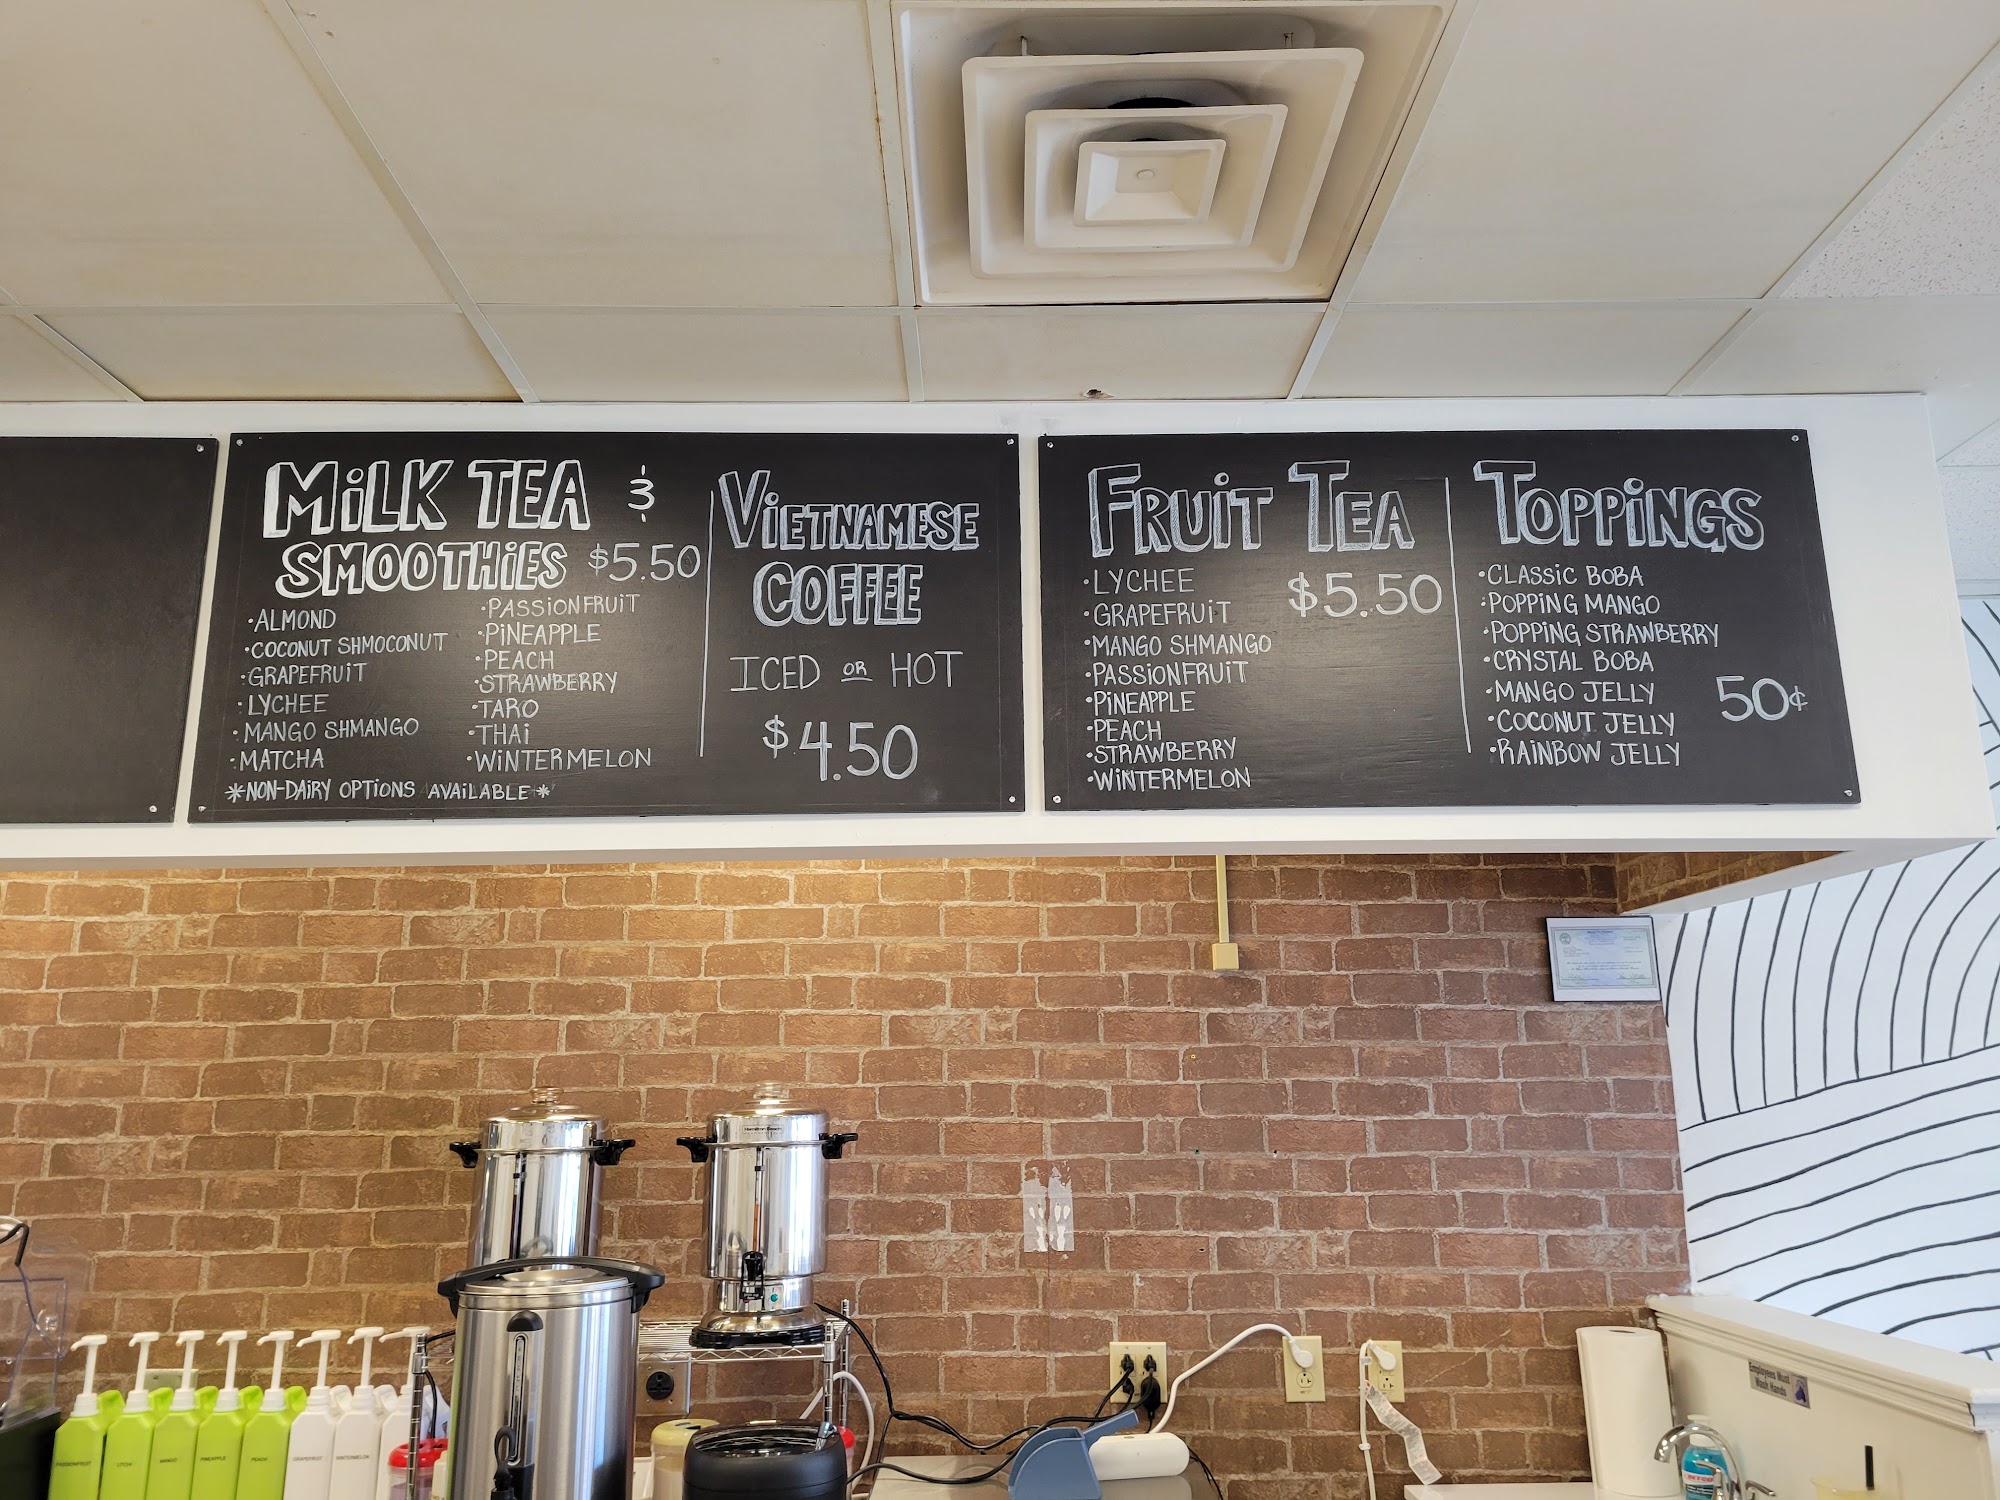 MiLK TEA &
SMOOTHiES $5.50
•ALMOND
•COCONUT SHMOCONUT
•GRAPEFRUiT
•LYCHEE
•MANGO SHMANGO
•MATCHA
•PASSIONFRUiT
•PiNEAPPLE
•PEACH
•STRAWBERRY
•TARO
•THAi
•WiNTERMELON
*NON-DAiRY OPTiONS AVAiLABLE*
ViETNAMESE
COFFEE
ICED OR HOT
$4.50
FRUiT TEA
$5.50
•LYCHEE
•GRAPEFRUiT
•MANGO SHMANGO
•PASSiONFRUiT
•PiNEAPPLE
•PEACH
•STRAWBERRY
•WiNTERMELON
TOPPiNGS
•CLASSIC BOBA
•POPPING MANGO
•POPPING STRAWBERRY
•CRYSTAL BOBA
•MANGO JELLY
•COCONUT JELLY
•RAINBOW JELLY
50¢
Hamilton Beach
PASSIONFRUIT
LYCHEE
MANGO
PINEAPPLE
PEACH
GRAPEFRUIT
WINTERMELON
Employees Must
Wash Hands